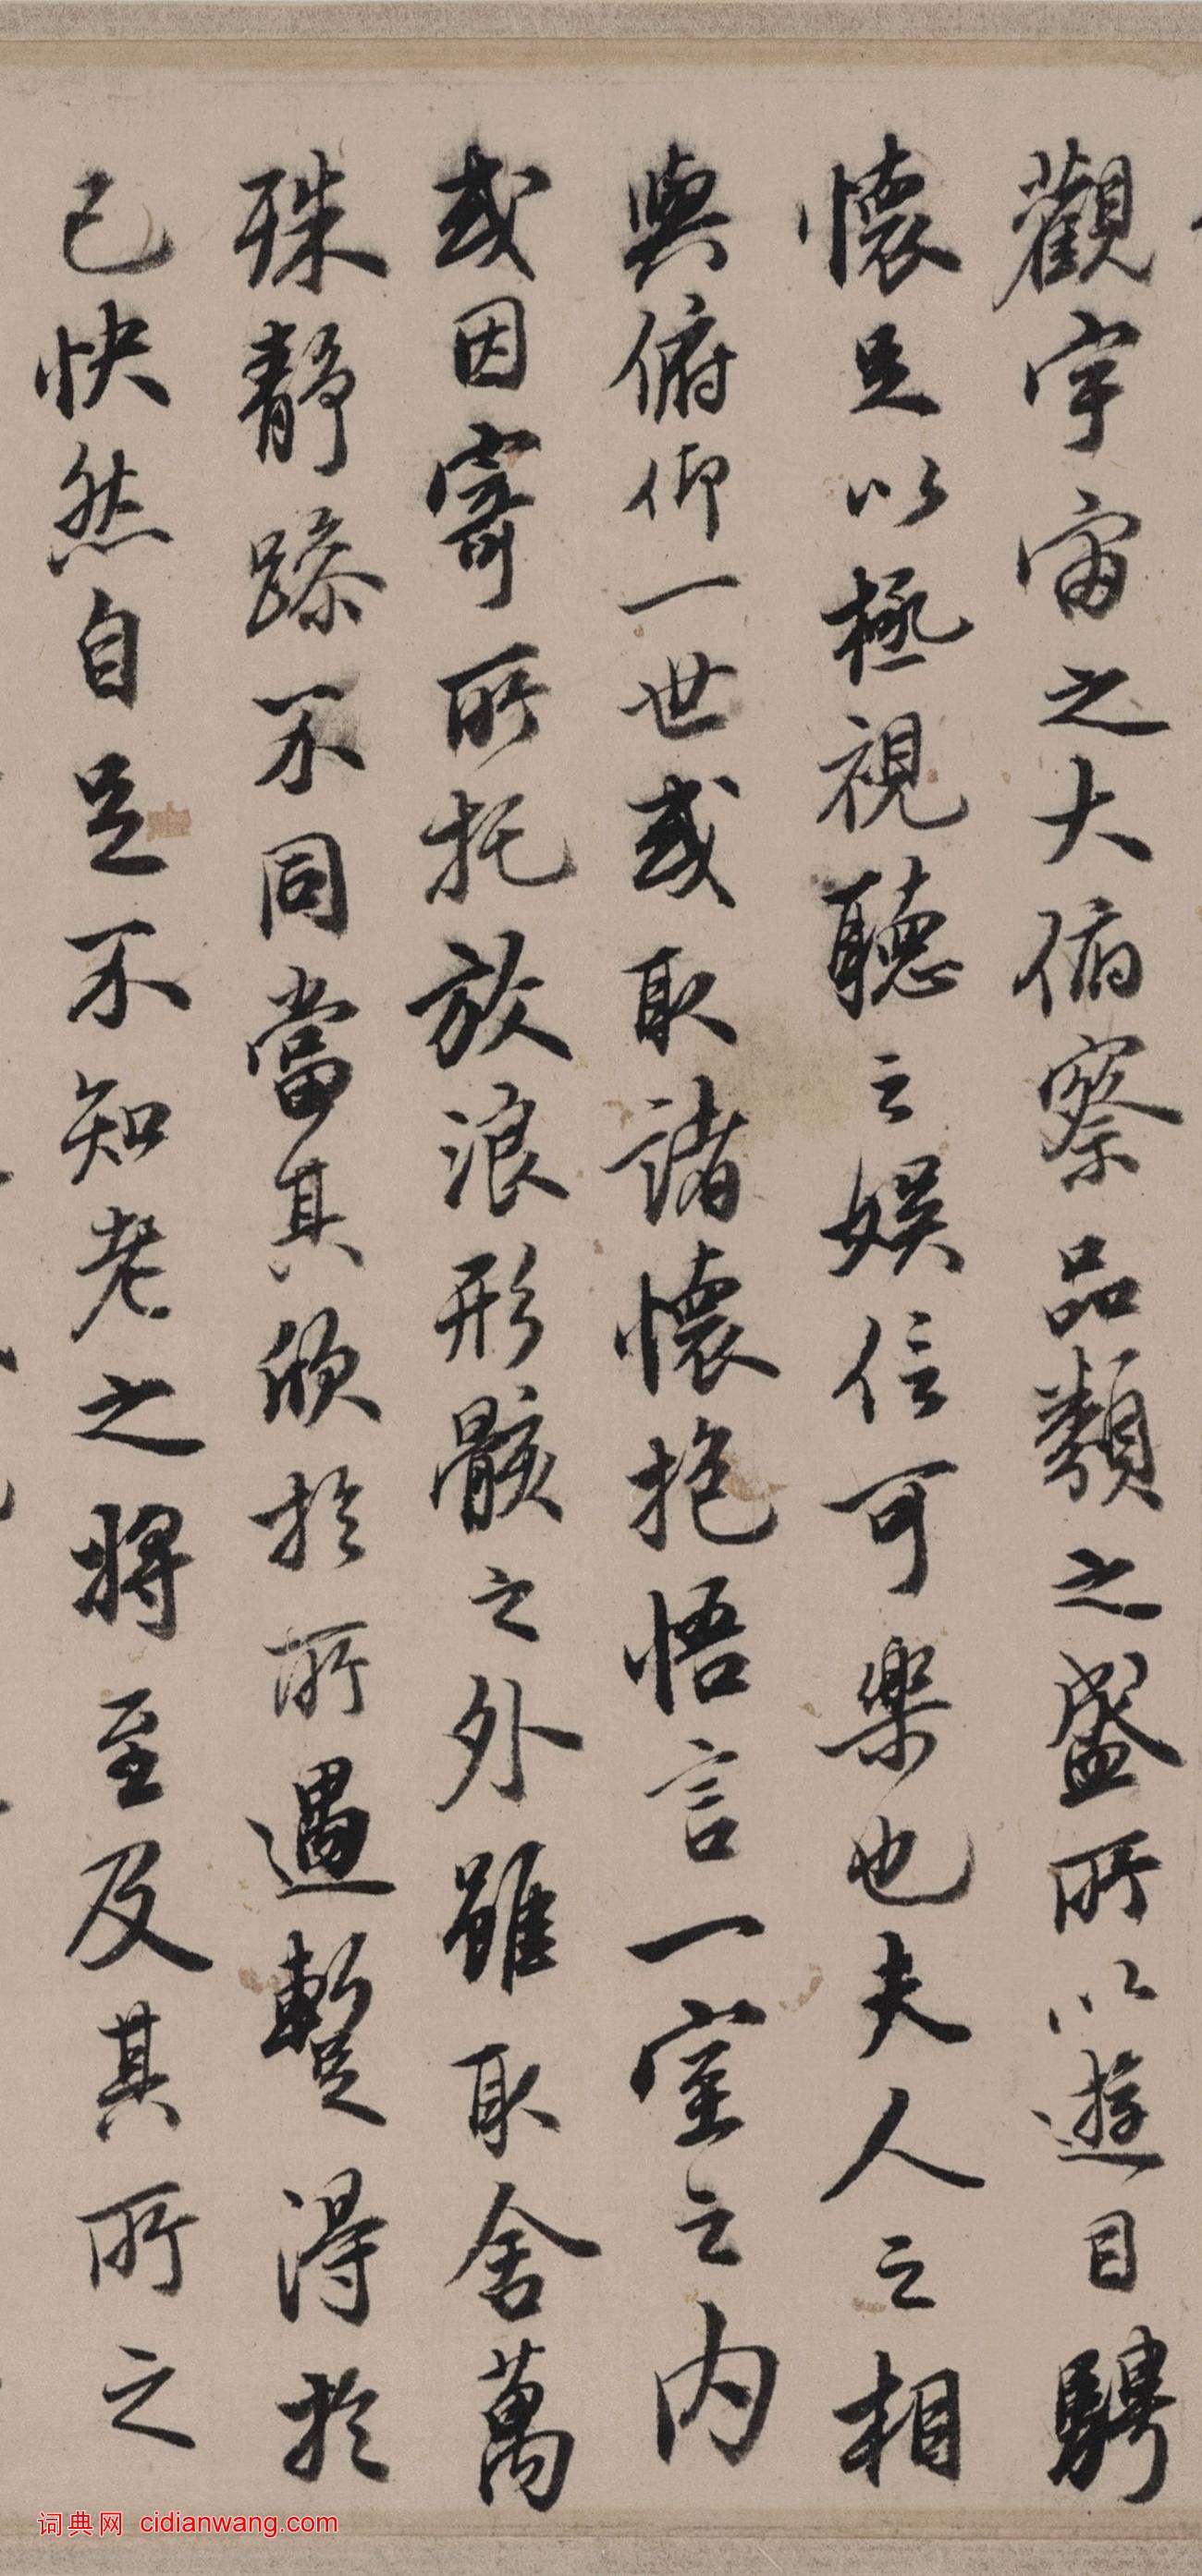 觀宇宙之大俯察品類之盛所以遊目騁
懷足以極視聽之娛信可樂也夫人之相
與俯仰一世或取諸懷抱悟言一室之內
或因寄所托放浪形骸之外雖取舍萬
殊靜躁不同當其欣於所遇暫得於
己快然自足不知老之將至及其所之
词典网 cidianwang.com